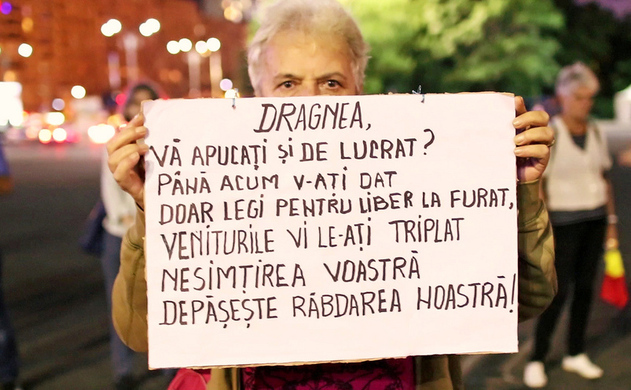 DRAGNEA,
VĂ APUCAȚI ȘI DE LUCRAT?
PÂNĂ ACUM V-AȚI DAT
DOAR LEGI PENTRU LIBER LA FURAT,
VENITURILE VI LE-AȚI TRIPLAT
NESIMȚIREA VOASTRĂ
DEPĂȘEȘTE RĂBDAREA NOASTRĂ!